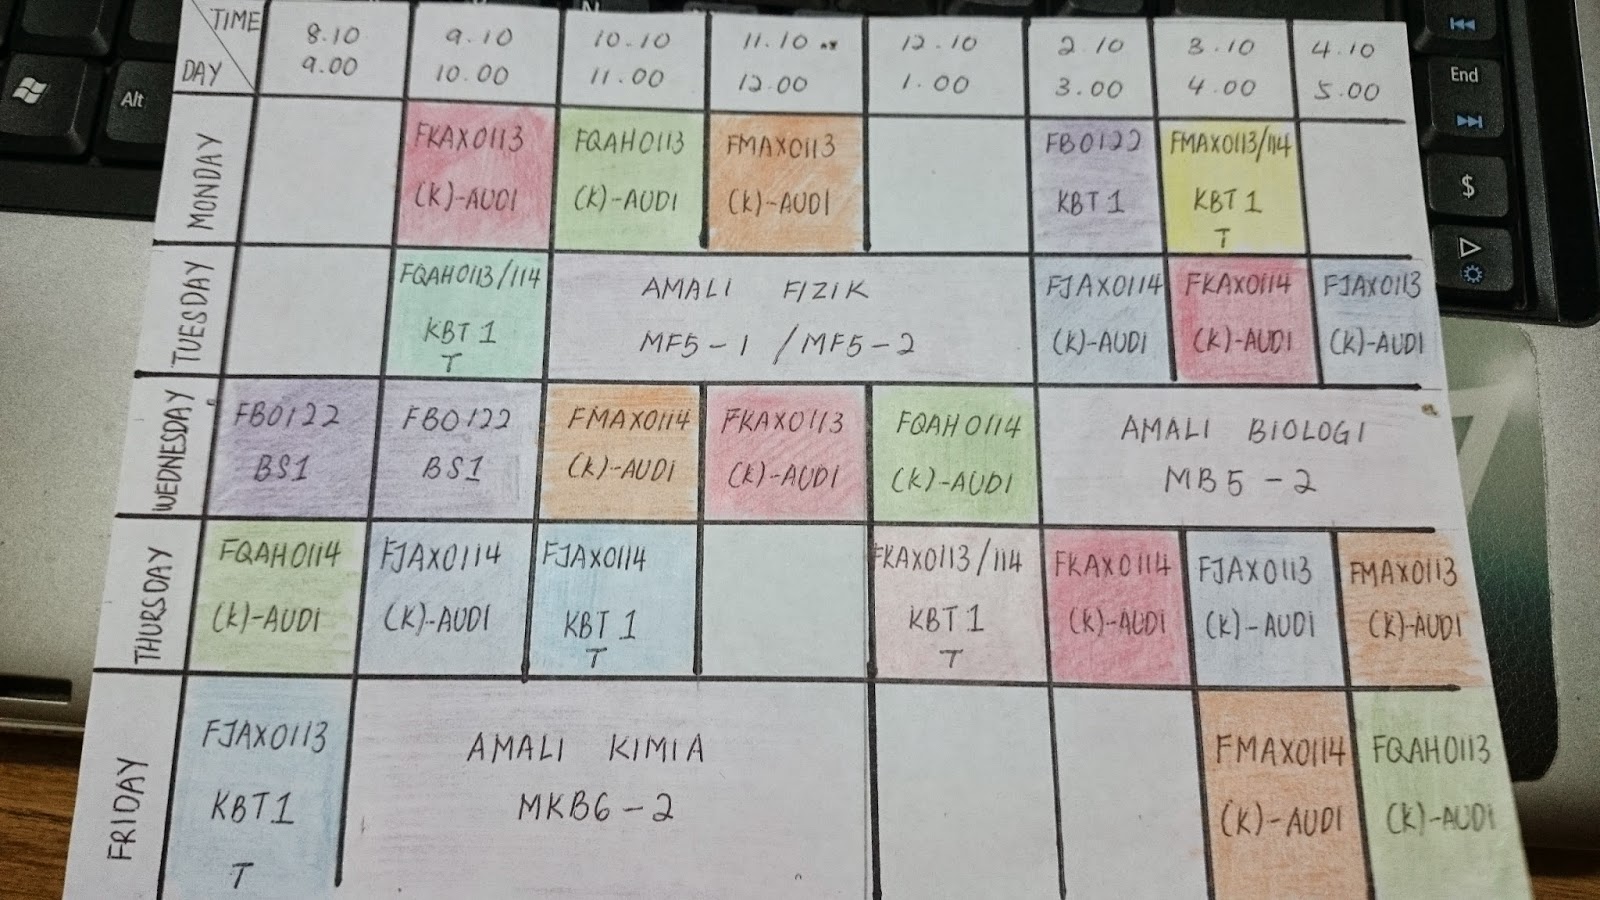 TIME
DAY
8.10
9.00
9.10
10.00
10.10
11.00
11.10
12.00
12.10
1.00
2.10
3.00
3.10
4.00
4.10
5.00
MONDAY
FKAX0113
(K)-AUDI
FQAH0113
(K)-AUDI
FMAX0113
(K)-AUDI
FB0122
KBT 1
FMAX0113/114
KBT 1
T
TUESDAY
FQAH0113/114
KBT 1
T
AMALI FIZIK
MF5-1 / MF5-2
FJAX0114
(K)-AUDI
FKAX0114
(K)-AUDI
FJAX0113
(K)-AUDI
WEDNESDAY
FB0122
BS1
FB0122
BS1
FMAX0114
(K)-AUDI
FKAX0113
(K)-AUDI
FQAH0114
(K)-AUDI
AMALI BIOLOGI
MB5-2
THURSDAY
FQAH0114
(K)-AUDI
FJAX0114
(K)-AUDI
FJAX0114
KBT 1
T
FKAX0113/114
KBT 1
T
FKAX0114
(K)-AUDI
FJAX0113
(K)-AUDI
FMAX0113
(K)-AUDI
FRIDAY
FJAX0113
KBT1
T
AMALI KIMIA
MKB6-2
FMAX0114
(K)-AUDI
FQAH0113
(K)-AUDI
Alt
End
$